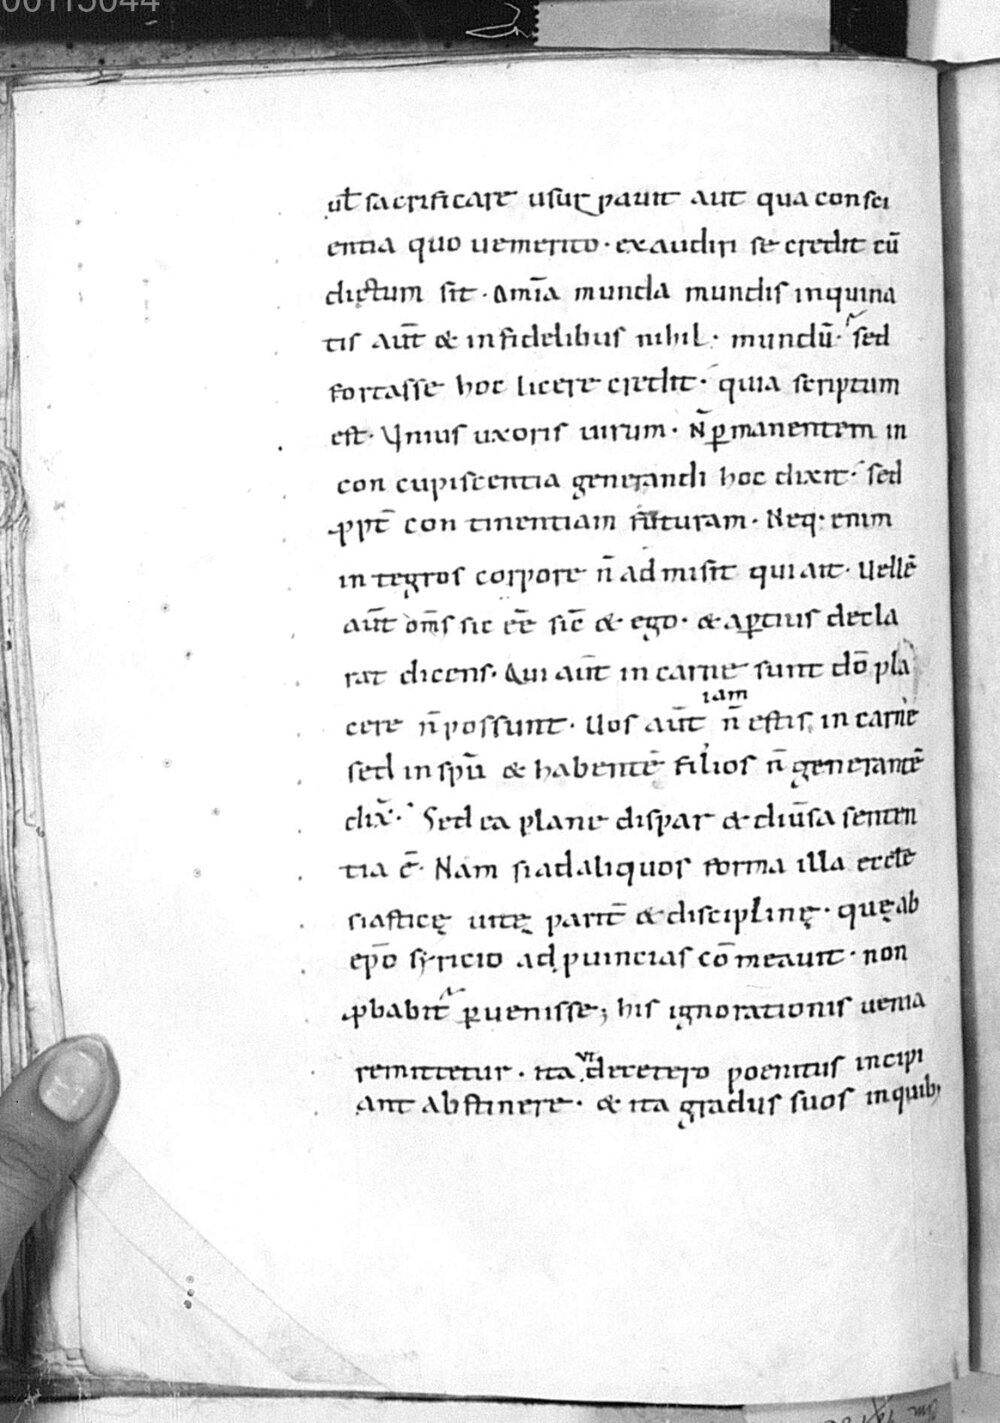 00115044
ul̄ sacrificare usurpauit aut qua consci
entia quo ue merito· exaudiri se credit cū
dictum sit· Om̄ia munda mundis inquina
tis aūt & infidelibus nihil· mundū· sed
fortasse hoc licere credit· quia scriptum
est· Vnius uxoris uirum· N̄ ꝑmanentem in
concupiscentia generandi hoc dixit· sed
ꝓpt̄ continentiam futuram· Neq· enim
integros corpore n̄ admisit qui ait· Uellē
aūt om̄s sic eē sic̄ & ego· & aꝑtius decla
rat dicens· Qui aūt in carne sunt dō pla
cere n̄ possunt· Uos aūt iam n̄ estis in carne
sed in spū & habentē filios n̄ generantē
dix̄· Sed ea plane dispar & diūsa senten
tia ē· Nam si ad aliquos forma illa eccłe
siasticę uitę parit̄ & disciplinę· quę ab
ep̄o syricio ad ꝓuincias cōmeauit· non
ꝓbabit̄ ꝑuenisse; his ignorationis uenia
remittetur· ita ut de cetero poenitus incipi
ant abstinere· & ita gradus suos in quib;